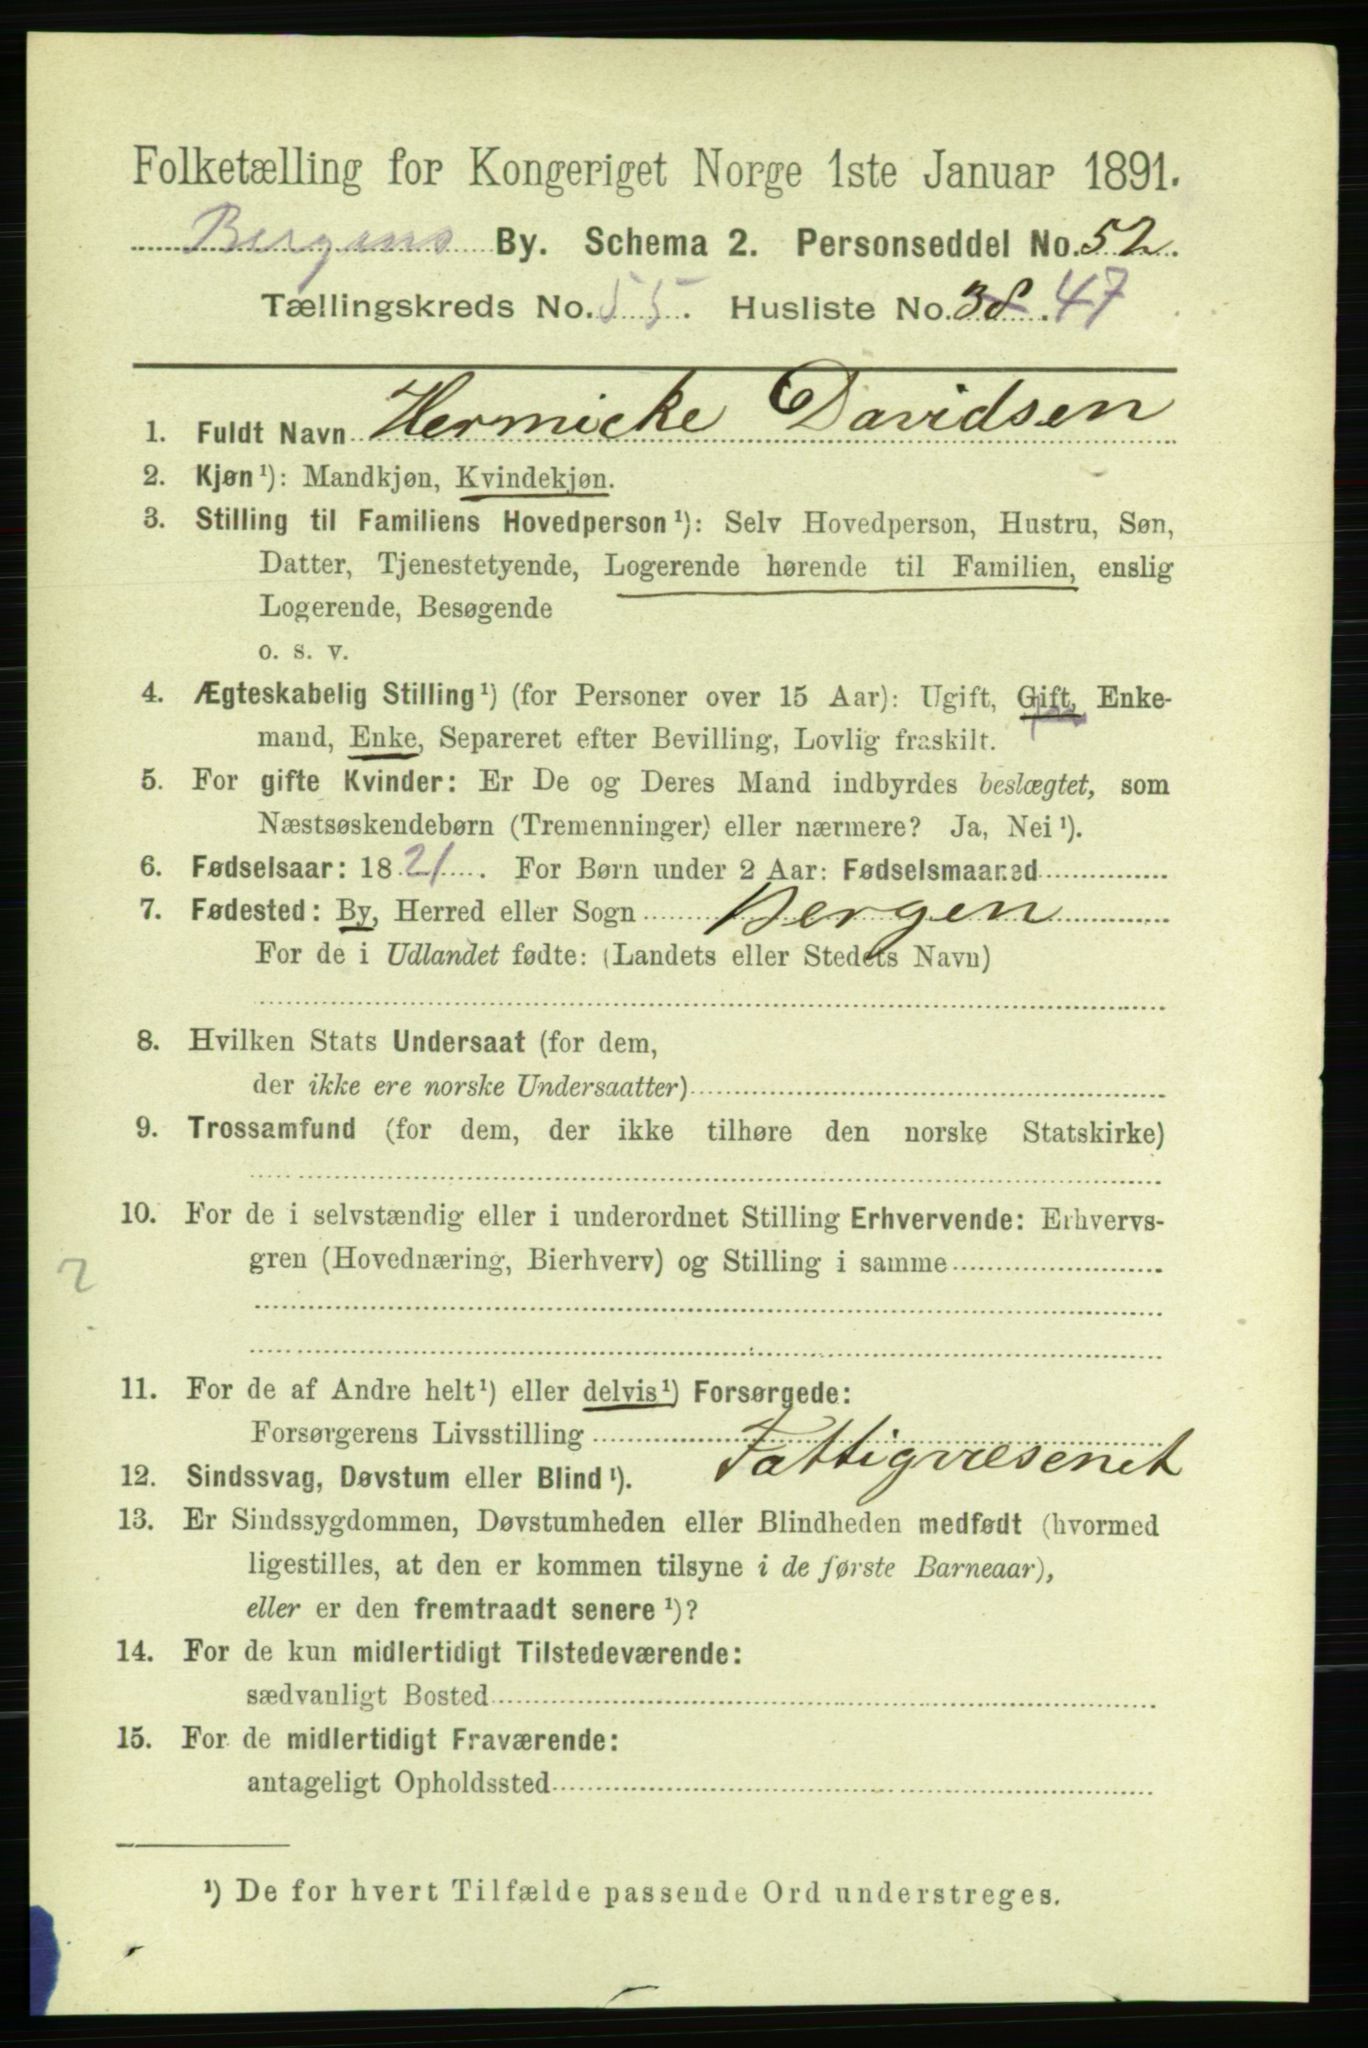 Folketælling for Kongeriget Norge 1ste Januar 1891.
Bergens By. Schema 2. Personseddel No. 52.
Tællingskreds No. 55. Husliste No. 38. 47
1. Fuldt Navn Hermicke Davidsen
2. Kjøn ¹): Mandkjøn, Kvindekjøn.
3. Stilling til Familiens Hovedperson ¹): Selv Hovedperson, Hustru, Søn,
Datter, Tjenestetyende, Logerende hørende til Familien, enslig
Logerende, Besøgende
o. s. v.
4. Ægteskabelig Stilling ¹) (for Personer over 15 Aar): Ugift, Gift, Enke-
mand, Enke, Separeret efter Bevilling, Lovlig fraskilt.
5. For gifte Kvinder: Er De og Deres Mand indbyrdes beslægtet, som
Næstsøskendebørn (Tremenninger) eller nærmere? Ja, Nei ¹).
6. Fødselsaar: 1821. For Børn under 2 Aar: Fødselsmaaned
7. Fødested: By, Herred eller Sogn Bergen
For de i Udlandet fødte: (Landets eller Stedets Navn)
8. Hvilken Stats Undersaat (for dem,
der ikke ere norske Undersaatter)
9. Trossamfund (for dem, der ikke tilhøre den norske Statskirke)
10. For de i selvstændig eller i underordnet Stilling Erhvervende: Erhvervs-
gren (Hovednæring, Bierhverv) og Stilling i samme
2
11. For de af Andre helt ¹) eller delvis ¹) Forsørgede:
Forsørgerens Livsstilling Fattigvæsenet
12. Sindssvag, Døvstum eller Blind ¹).
13. Er Sindssygdommen, Døvstumheden eller Blindheden medfødt (hvormed
ligestilles, at den er kommen tilsyne i de første Barneaar),
eller er den fremtraadt senere ¹)?
14. For de kun midlertidigt Tilstedeværende:
sædvanligt Bosted
15. For de midlertidigt Fraværende:
antageligt Opholdssted
¹) De for hvert Tilfælde passende Ord understreges.